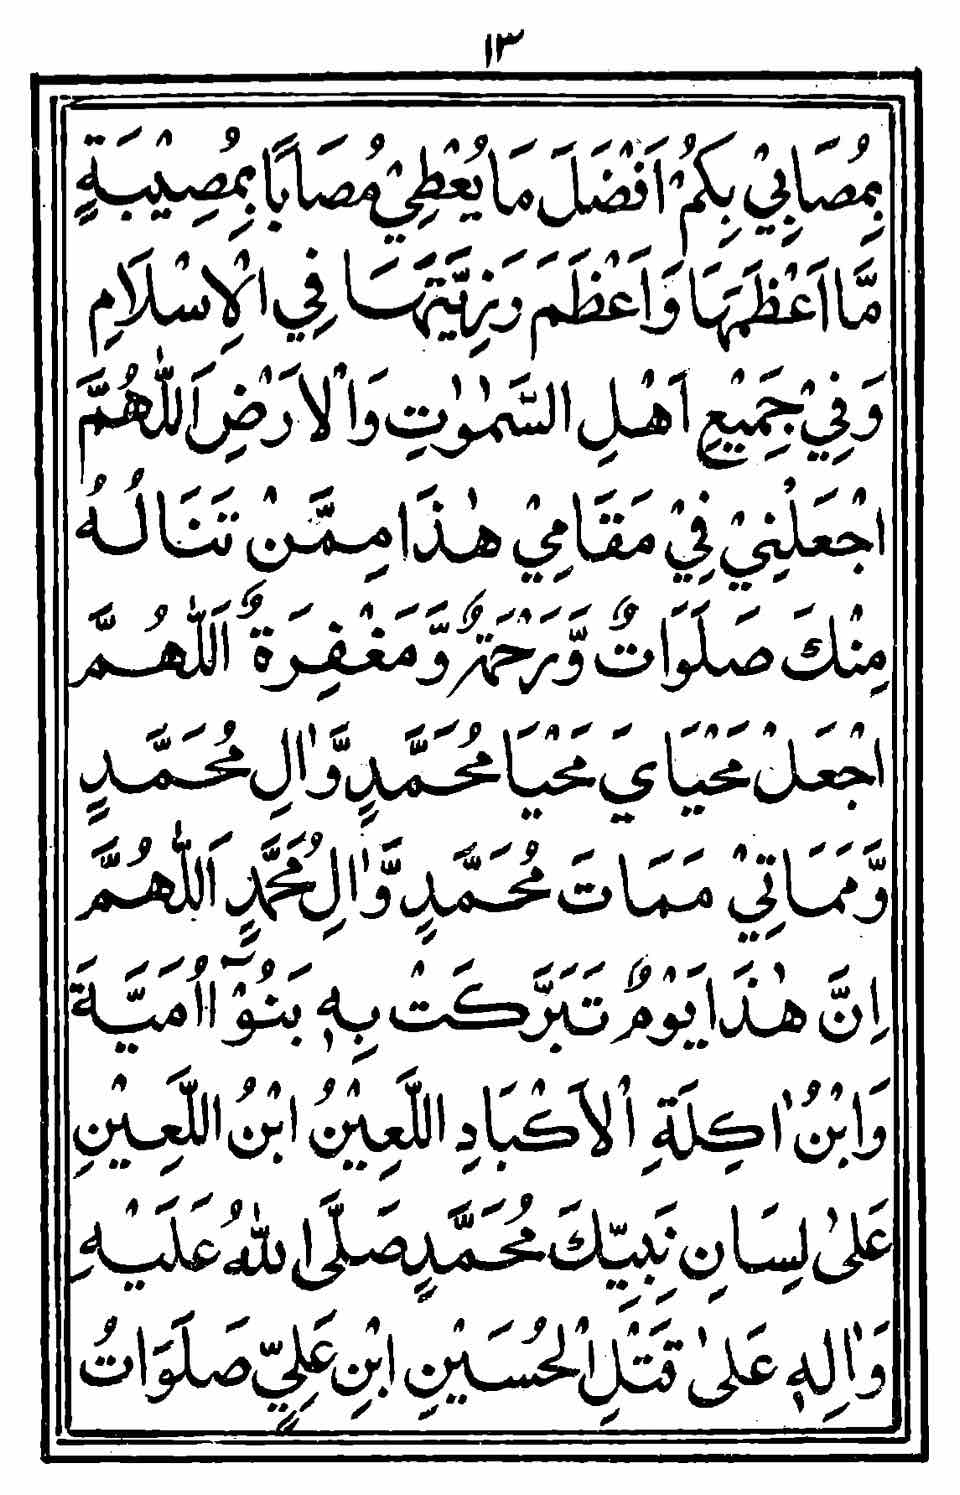 ١٣
بِمُصَابِيْ بِكُمْ اَفْضَلَ مَا يُعْطِيْ مُصَابًا بِمُصِيْبَةٍ
مَّا اَعْظَمَهَا وَاَعْظَمَ رَزِيَّتَهَا فِي الْاِسْلَامِ
وَفِيْ جَمِيْعِ اَهْلِ السَّمٰوٰتِ وَالْاَرْضِ اَللّٰهُمَّ
اجْعَلْنِيْ فِيْ مَقَامِيْ هٰذَا مِمَّنْ تَنَالُهُ
مِنْكَ صَلَوَاتٌ وَّرَحْمَةٌ وَّمَغْفِرَةٌ اَللّٰهُمَّ
اجْعَلْ مَحْيَايَ مَحْيَا مُحَمَّدٍ وَّاٰلِ مُحَمَّدٍ
وَّمَمَاتِيْ مَمَاتَ مُحَمَّدٍ وَّاٰلِ مُحَمَّدٍ اَللّٰهُمَّ
اِنَّ هٰذَا يَوْمٌ تَبَرَّكَتْ بِهٖ بَنُوْٓا اُمَيَّةَ
وَابْنُ اٰكِلَةِ الْاَكْبَادِ اللَّعِيْنُ ابْنُ اللَّعِيْنِ
عَلىٰ لِسَانِ نَبِيِّكَ مُحَمَّدٍ صَلَّى اللهُ عَلَيْهِ
وَاٰلِهٖ عَلىٰ قَتْلِ الْحُسَيْنِ ابْنِ عَلِيٍّ صَلَوَاتُ